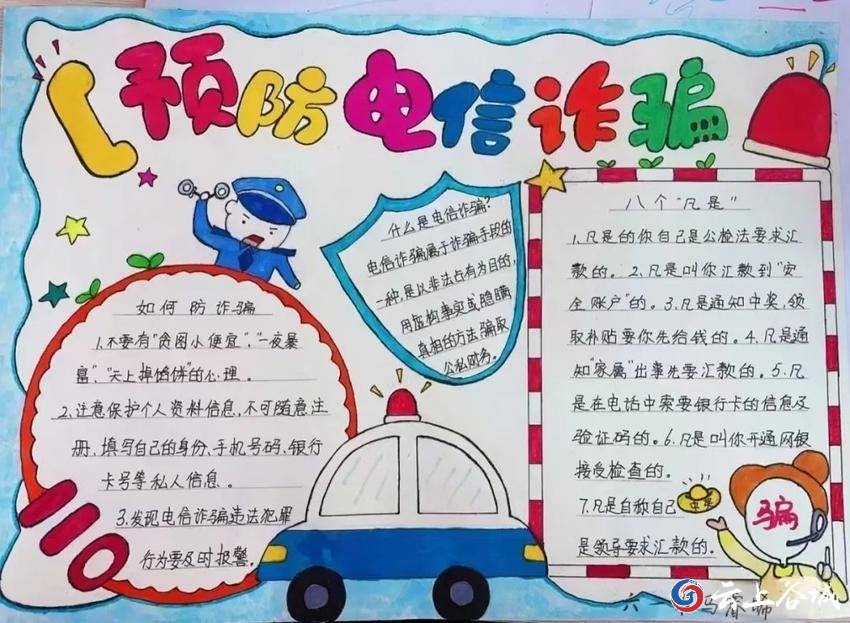 预防电信诈骗
如何防诈骗
1.不要有“贪图小便宜”、“一夜暴
富”、“天上掉馅饼”的心理。
2.注意保护个人资料信息,不可随意注
册、填写自己的身份、手机号码、银行
卡号等私人信息。
3.发现电信诈骗违法犯罪
行为要及时报警。
什么是电信诈骗?
电信诈骗属于诈骗手段的
一种,是以非法占有为目的,
用虚构事实或隐瞒
真相的方法骗取
公私财务。
八个“凡是”
1.凡是的你自己是公检法要求汇
款的。2.凡是叫你汇款到“安
全账户”的。3.凡是通知中奖,领
取补贴要你先给钱的。4.凡是通
知“家属”出事先要汇款的。5.凡
是在电话中索要银行卡的信息及
验证码的。6.凡是叫你开通网银
接受检查的。
7.凡是自称自己
是领导要求汇款的。
中奖
骗
六一
云上谷城